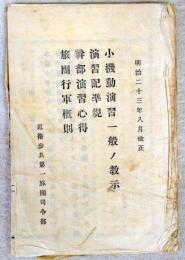 明治二十三年八月改正
小機動演習一般ノ教示
演習記準規
幹部演習心得
旅團行軍概則
近衛歩兵第一旅團司令部